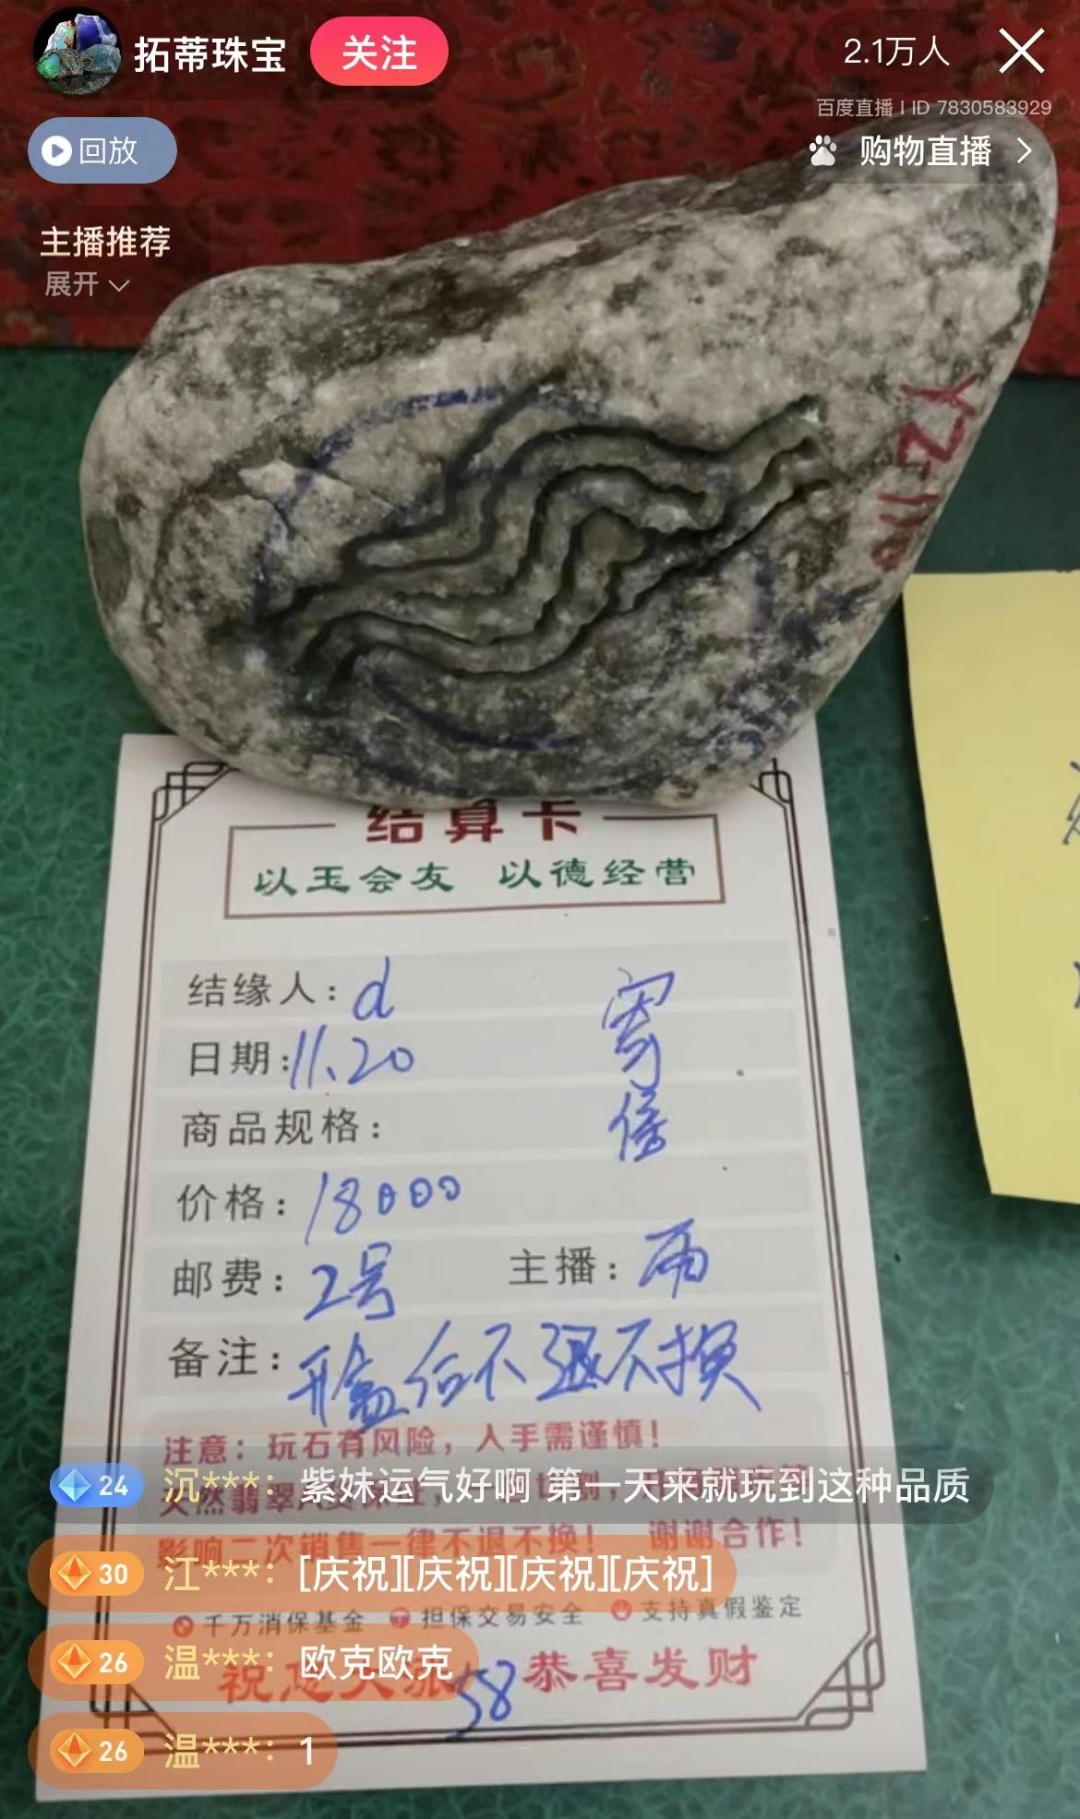 拓蒂珠宝 关注 2.1万人
百度直播 | ID 7830583929
回放 购物直播
主播推荐
展开
YZ-110
结算卡
以玉会友 以德经营
结缘人: d
日期: 11.20
商品规格:
价格: 18000
邮费: 2号 主播: 雨
备注: 开盒后不退不换
注意: 玩石有风险, 入手需谨慎!
24 沉***: 紫妹运气好啊 第一天来就玩到这种品质
影响二次销售一律不退不换! 谢谢合作!
30 江***: [庆祝][庆祝][庆祝][庆祝]
千万消保基金 担保交易安全 支持真假鉴定
26 温***: 欧克欧克
58 恭喜发财
26 温***: 1